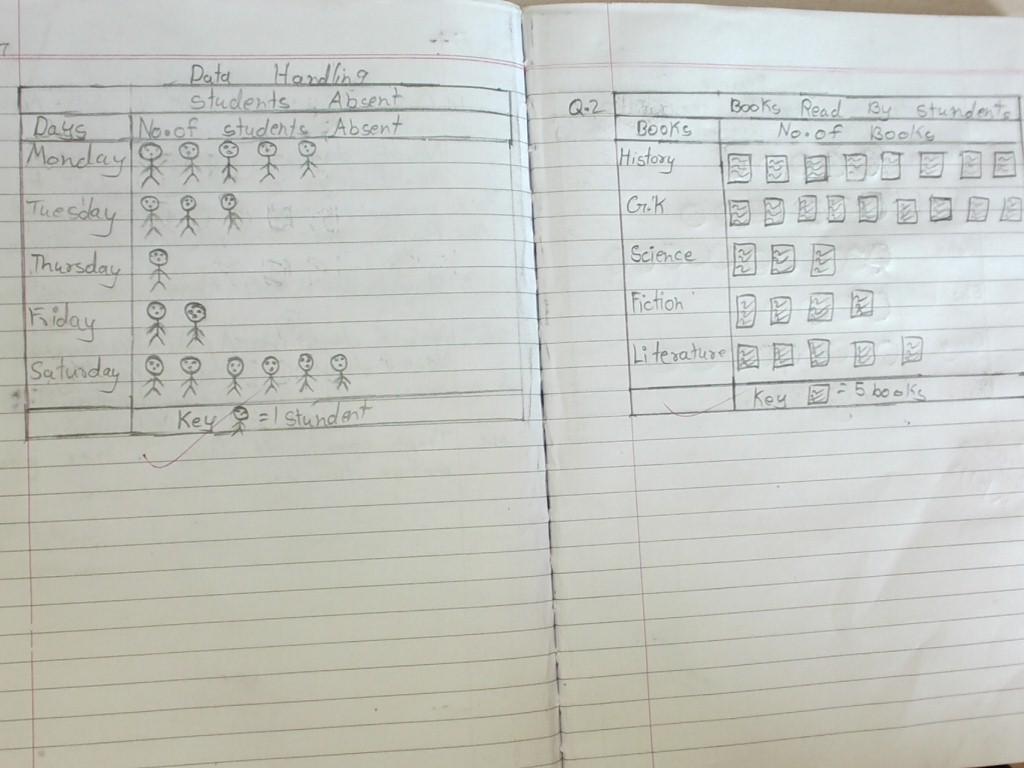 7
Data Hardling
Students Absent
Days No. of students Absent
Monday
Tuesday
Thursday
Friday
Saturday
Key = 1 stundent
Q.2 Books Read By stundents
Books No. of Books
History
G.K
Science
Fiction
Literature
Key = 5 books